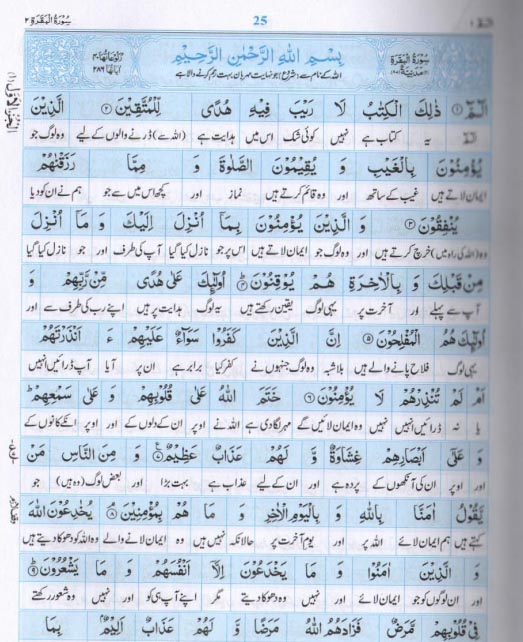 سُوْرَةُ الْبَقَرَةِ ٢
25
سُوْرَةُ الْبَقَرَةِ
بِسْمِ اللّٰهِ الرَّحْمٰنِ الرَّحِيْمِ
اللہ کے نام سے (شروع) جو نہایت مہربان بہت رحم کرنے والا ہے
الٓمّٓ ۚ﴿۱﴾ ذٰلِكَ الْكِتٰبُ لَا رَيْبَ فِيْهِ هُدًى لِّلْمُتَّقِيْنَ ﴿۲﴾ الَّذِيْنَ
الٓمّٓ یہ کتاب ہے نہیں کوئی شک اس میں ہدایت ہے (اللہ سے) ڈرنے والوں کے لیے وہ لوگ جو
يُؤْمِنُوْنَ بِالْغَيْبِ وَ يُقِيْمُوْنَ الصَّلٰوةَ وَ مِمَّا رَزَقْنٰهُمْ
ایمان لاتے ہیں غیب کے ساتھ اور وہ قائم کرتے ہیں نماز اور کچھ اس میں سے جو ہم نے ان کو دیا
يُنْفِقُوْنَ ﴿۳﴾ وَ الَّذِيْنَ يُؤْمِنُوْنَ بِمَا اُنْزِلَ اِلَيْكَ وَ مَا اُنْزِلَ
وہ (اللہ کی راہ میں) خرچ کرتے ہیں اور وہ لوگ جو ایمان لاتے ہیں اس پر جو نازل کیا گیا آپ کی طرف اور جو نازل کیا گیا
مِنْ قَبْلِكَ وَ بِالْاٰخِرَةِ هُمْ يُوْقِنُوْنَ ﴿۴﴾ اُولٰٓئِكَ عَلٰى هُدًى مِّنْ رَّبِّهِمْ وَ
آپ سے پہلے اور آخرت پر یہی لوگ یقین رکھتے ہیں یہ لوگ ہدایت پر ہیں اپنے رب کی طرف سے اور
اُولٰٓئِكَ هُمُ الْمُفْلِحُوْنَ ﴿۵﴾ اِنَّ الَّذِيْنَ كَفَرُوْا سَوَآءٌ عَلَيْهِمْ ءَ اَنْذَرْتَهُمْ
یہی لوگ فلاح پانے والے ہیں بلاشبہ وہ لوگ جنہوں نے کفر کیا برابر ہے ان پر آیا آپ ڈرائیں انہیں
اَمْ لَمْ تُنْذِرْهُمْ لَا يُؤْمِنُوْنَ ﴿۶﴾ خَتَمَ اللّٰهُ عَلٰى قُلُوْبِهِمْ وَ عَلٰى سَمْعِهِمْ ؕ
یا نہ ڈرائیں انہیں نہیں وہ ایمان لائیں گے مہر لگا دی ہے اللہ نے اوپر ان کے دلوں کے اور اوپر انکے کانوں کے
وَ عَلٰٓى اَبْصَارِهِمْ غِشَاوَةٌ وَّ لَهُمْ عَذَابٌ عَظِيْمٌ ﴿۷﴾ وَ مِنَ النَّاسِ مَنْ
اور اوپر ان کی آنکھوں کے پردہ ہے اور ان کے لیے عذاب ہے بہت بڑا اور بعض لوگ (وہ ہیں) جو
يَّقُوْلُ اٰمَنَّا بِاللّٰهِ وَ بِالْيَوْمِ الْاٰخِرِ وَ مَا هُمْ بِمُؤْمِنِيْنَ ﴿۸﴾ يُخٰدِعُوْنَ اللّٰهَ
کہتے ہیں ہم ایمان لائے اللہ پر اور یوم آخرت پر حالانکہ نہیں ہیں وہ ایمان لانے والے وہ اللہ کو دھوکا دیتے ہیں
وَ الَّذِيْنَ اٰمَنُوْا وَ مَا يَخْدَعُوْنَ اِلَّآ اَنْفُسَهُمْ وَ مَا يَشْعُرُوْنَ ﴿۹﴾
اور ان لوگوں کو جو ایمان لائے اور نہیں وہ دھوکا دیتے مگر اپنے آپ ہی کو اور نہیں وہ شعور رکھتے
فِيْ قُلُوْبِهِمْ مَّرَضٌ فَزَادَهُمُ اللّٰهُ مَرَضًا وَّ لَهُمْ عَذَابٌ اَلِيْمٌ بِمَا